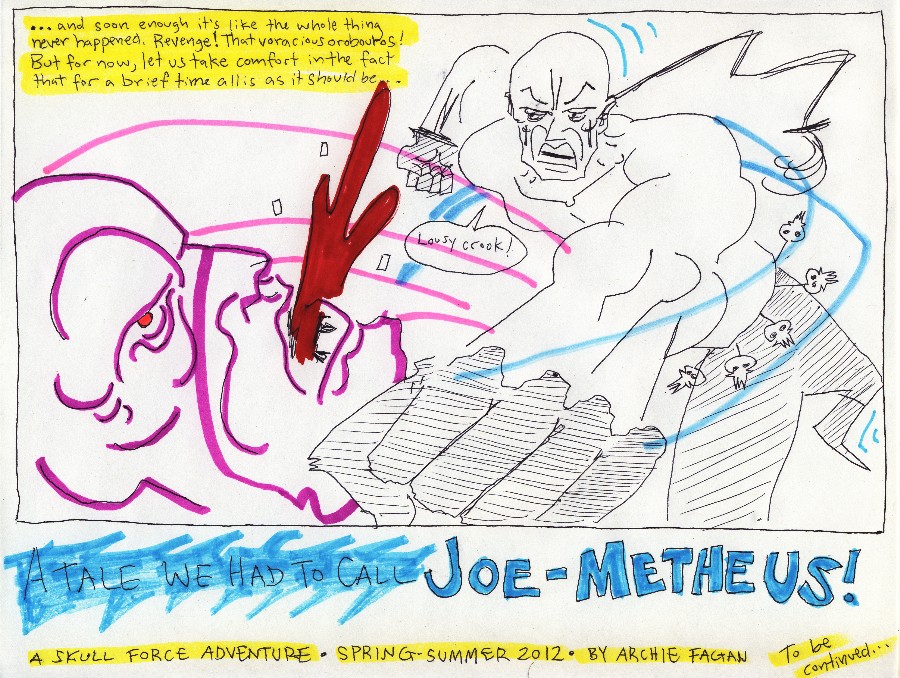 ... and soon enough it's like the whole thing
never happened. Revenge! That voracious orobouros!
But for now, let us take comfort in the fact
that for a brief time all is as it should be...
Lousy crook!
A TALE WE HAD TO CALL JOE-METHEUS!
A SKULL FORCE ADVENTURE • SPRING-SUMMER 2012 • BY ARCHIE FAGAN
To be
continued...